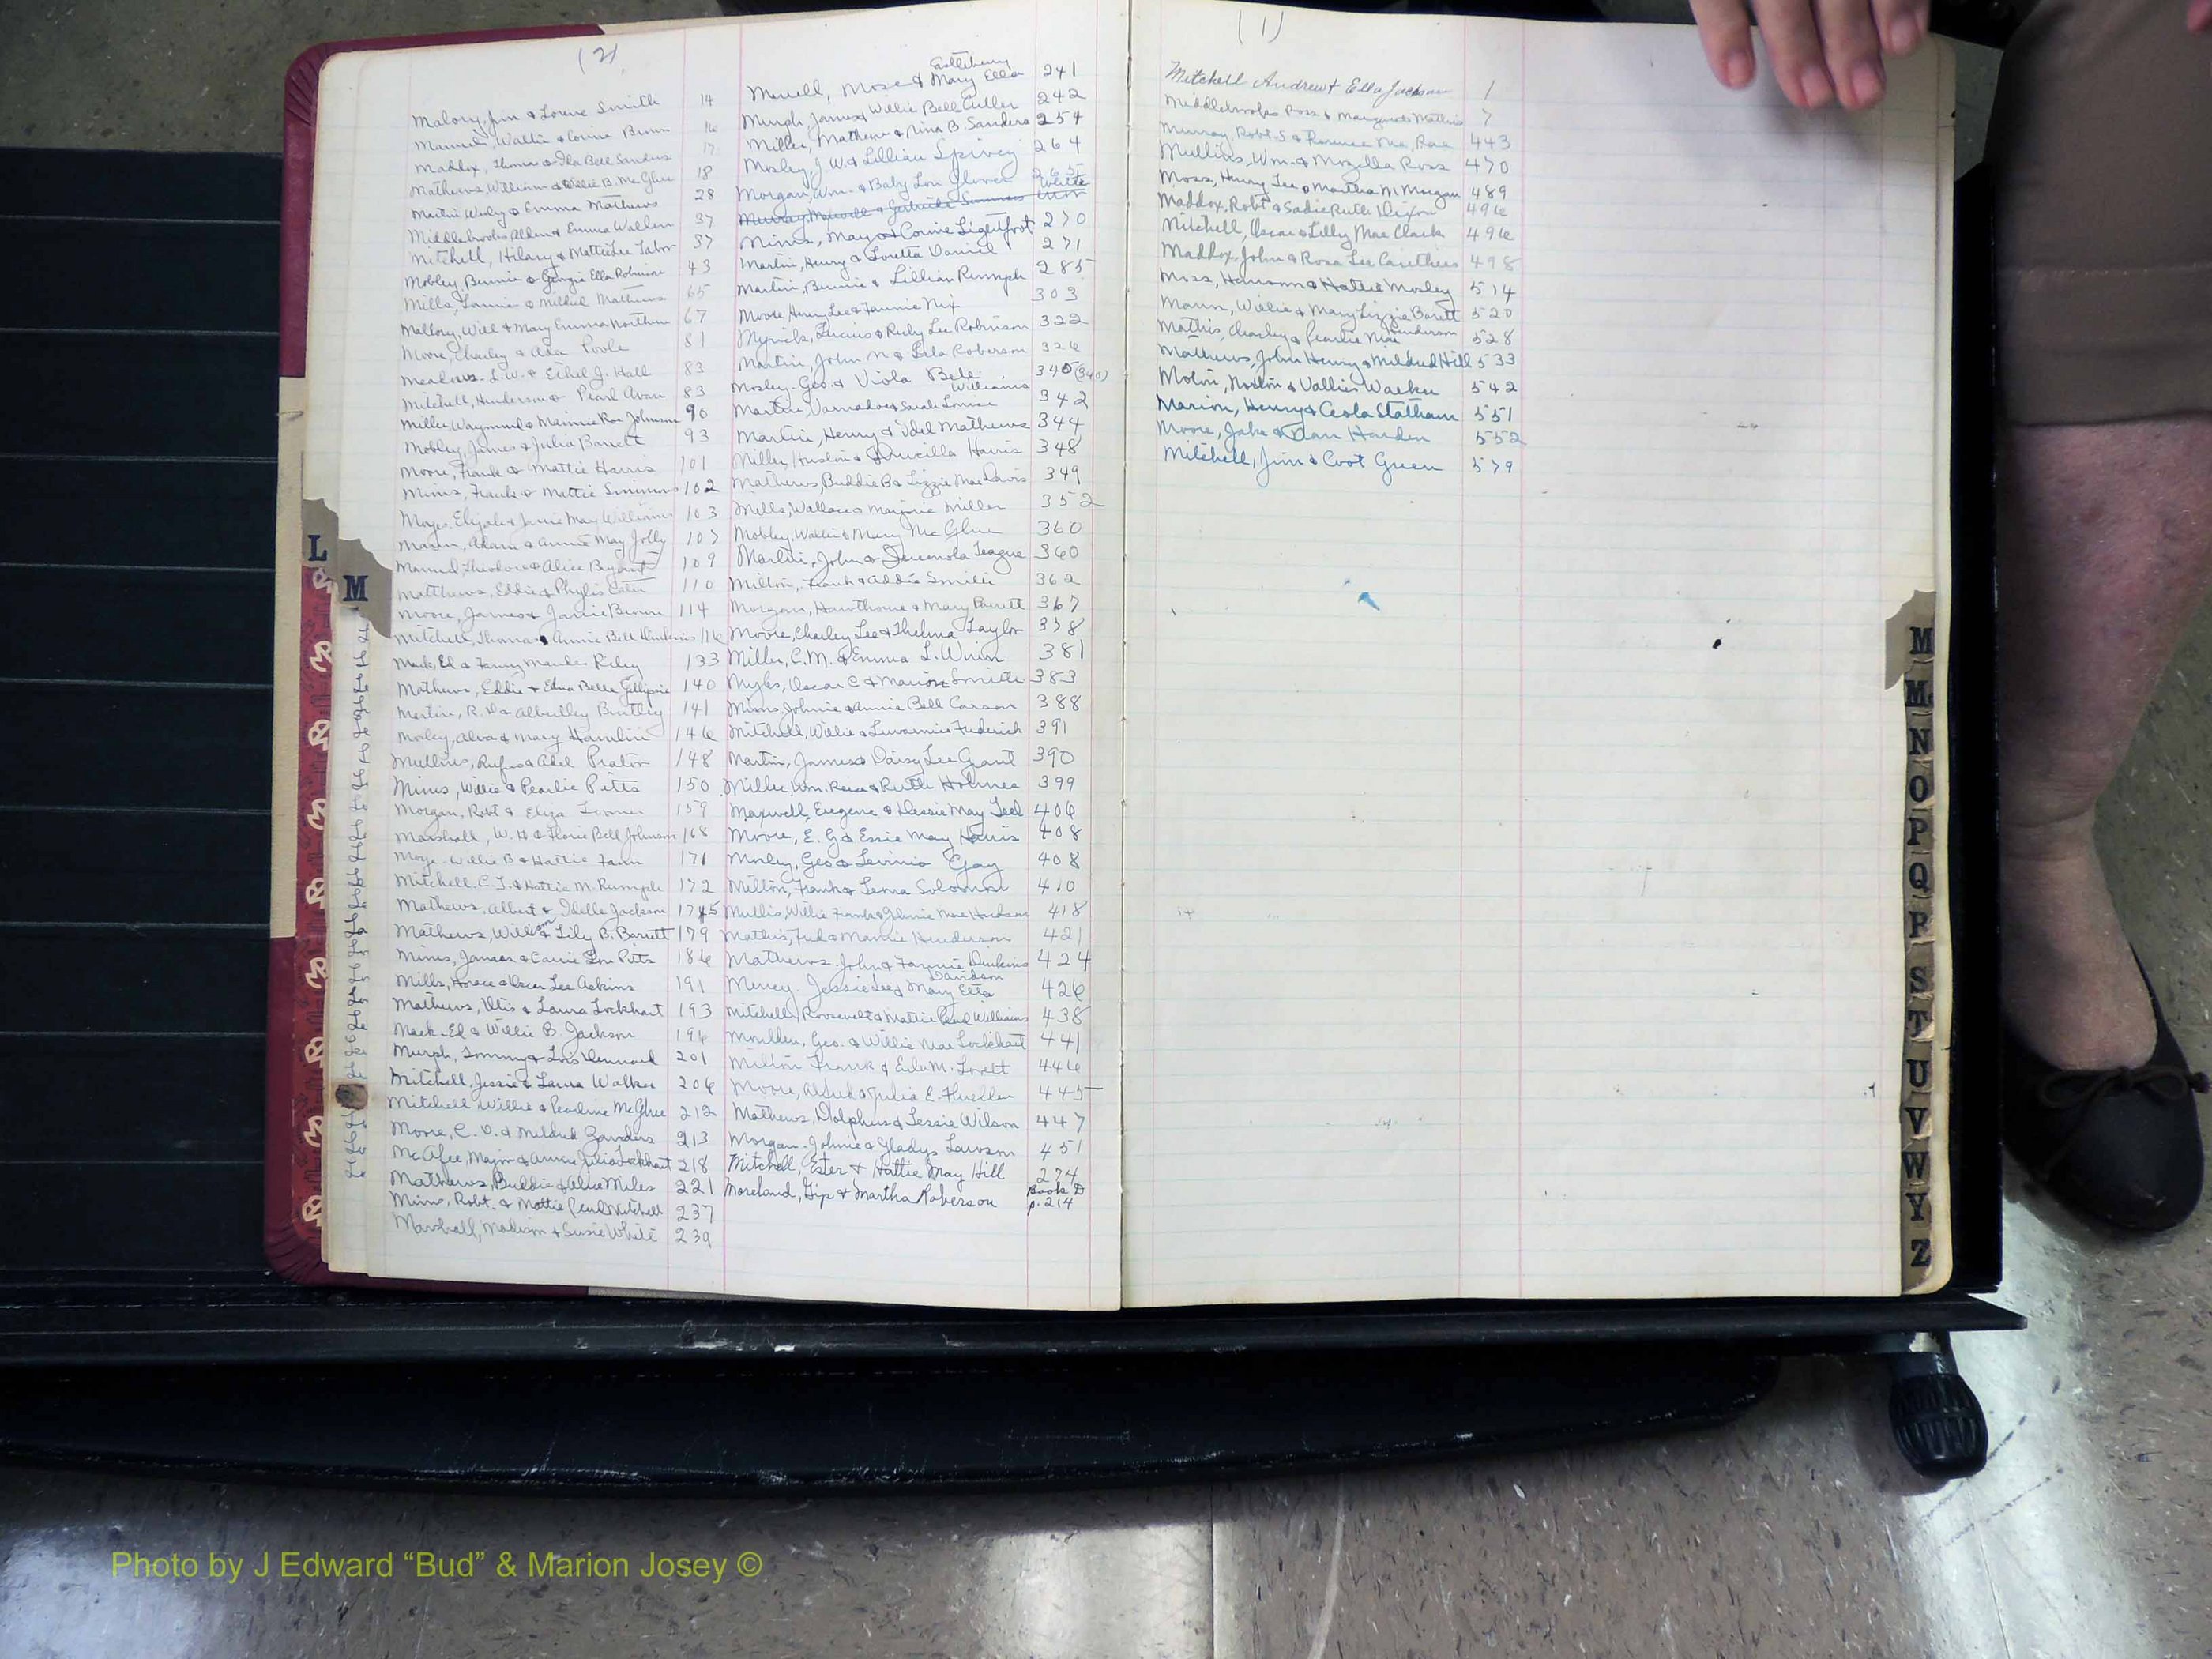 (2)
Malory, Jim & Louise Smith 14
Wallie & Corine Brown 16
Maddox, Thomas & Ila Bell Sanders 17
Mathews, William & Willie B. McGhee 18
Martin Wesley & Emma Mathews 28
Middlebrooks Alden & Emma Walker 37
Mitchell, Hilary & Mattie Lee Tabor 37
Mobley, Bennie & Georgia Ella Robinson 43
Mills, Lonnie & Mildred Mathews 65
Mallory, Will & Mary Emma 67
Moore, Charley & Ada Poole 81
Meadows. L.W. & Ethel J. Hall 83
Mitchell, Henderson & Pearl Avan 83
Miller, Waymond & Mainnie Rae Johnson 90
Mobley, James & Julia Barrett 93
Moore, Frank & Mattie Harris 101
Mims, Frank & Mattie Simmons 102
Moye, Elijah & Janie May Williams 103
Mann, Adam & Annie May Jolly 107
Theodore & Alice Bryant 109
Matthews, Eddie & Phylis Cater 110
Moore, James & Janie Brown 114
Mitchell, Thomas & Annie Bell Dinkins 116
Mack, Ed & Fanny Maude Riley 133
Mathews, Eddie & Edna Belle Gillispie 140
Martin, R. D. & Albutley Bentley 141
Mosley, Alva & Mary Hamlin 146
Mullins, Rufus & Adel Prator 148
Mims, Willie & Pearlie Pitts 150
Morgan, Robt & Eliza 159
Marshall, W. H & Florie Bell Johnson 168
Moye. Willie B & Hattie Fann 171
Mitchell. C. J. & Hattie M. Rumph 172
Mathews, Albert & Idella Jackson 175
Mathews, William & Lily B. Barrett 179
Mims, James & Carrie Lou Pitts 186
Mills, Horace & Oscar Lee Askins 191
Mathews, Otis & Laura Lockhart 193
Mack. Ed & Willie B. Jackson 196
Murph, Tommy & Lois Kennard 201
Mitchell, Jessie & Laura Walker 206
Mitchell Willie & Pearline McGhee 212
Moore, C. D. & Mildred Zanders 213
McAfee, Major & Annie Julia Lockhart 218
Mathews, Buddie & Alice Miles 221
Mims, Robt. & Mattie Pearl Mitchell 237
Marshall, Madison & Susie White 239
Castleberry
Merrell, Mose & Mary Ella 241
Murph James & Willie Bell Culler 242
Miller, Mathew & Nina B. Sanders 254
Mosley, J. W. & Lillian Spivey 264
Morgan, Wm. & Baby Lou Glover 265
Murray, Maxwell & Gertrude Simmons White
Mims, Mayo & Corine Lightfoot 270
Martin, Henry & Loretta Daniel 271
Martin, Bennie & Lillian Rumph 285
Moore Henry Lee & Fannie Nix 303
Myrick, Lucius & Ruby Lee Robinson 322
Martin, John N & Lila Roberson 326
Mosley. Geo. & Viola Bell 340 (340)
Williams
Martin, Varnadoe & Sarah Louise 342
Martin, Henry & Idel Mathews 344
Miller, Huston & Drucilla Harris 348
Mathews, Buddie B & Lizzie Mae Davis 349
Mells, Wallace & Marjorie Miller 352
Mobley, Walter & Mary McGhee 360
Martin, John & League 360
Milton, Frank & Addie Smith 362
Morgan, Hawthorne & Mary Barrett 367
Moore, Charley Lee & Thelma Taylor 378
Miller, C. M. & Emma L. Winn 381
Myles, Oscar C & Marion Smith 383
Mims Johnie & Annie Bell Carson 388
Mitchell, Willie & Luvernia Frederick 391
Martin, James & Daisy Lee Grant 390
Miller, Wm. Reese & Ruth Holmes 399
Maxwell, Eugene & Dessie May Teel 406
Moore, E. G & Essie May Harris 408
Mosley, Geo & Levinia Gay 408
Milton, Frank & Lena Solomon 410
Mullis, Willie Frank & Glennie Mae Hudson 418
Mathis, Fred & Mamie Henderson 421
Mathews. John & Fannie Dinkins 424
Davidson
Mercy. Jessie Lee & Mary Etta 426
Mitchell, Roosevelt & Mattie Pearl Williams 438
Moulden, Geo. & Willie Mae Lockhart 441
Milton Frank & Eula M. Lovett 446
Moore, Alfred & Julia E. Fuller 445
Mathews, Dolphus & Jessie Wilson 447
Morgan. Johnie & Gladys Lawson 451
Mitchell, Ester & Hattie May Hill 274
Moreland, Gip & Martha Roberson Book D
p. 214
(1)
Mitchell Andrew & Ella Jackson 1
Middlebrooks Ross & Marguerite Mathis 7
Murray, Robt. S & Florence Mae Rae 443
Mullins, Wm. & Mozella Ross 470
Moss, Henry Lee & Martha M Morgan 489
Maddox, Robt & Sadie Ruth Dixon 496
Mitchell, Oscar & Lilly Mae Clark 496
Maddox, John & Rosa Lee Caruthers 498
Moss, Harrison & Hattie Mosley 514
Mann, Willie & Mary Lizzie Barett 520
Henderson
Mathis, Charley & Pearlie Mae 528
Mathews, John Henry & Mildred Hill 533
Molin, Norlin & Vallies Walker 542
Marion, Henry & Ceola Statham 551
Moore, Jake & Nan Harden 552
Mitchell, Jim & Coot Green 579
L
M
M
Mc
N
O
P
Q
R
S
T
U
V
W
Y
Z
Photo by J Edward “Bud” & Marion Josey ©